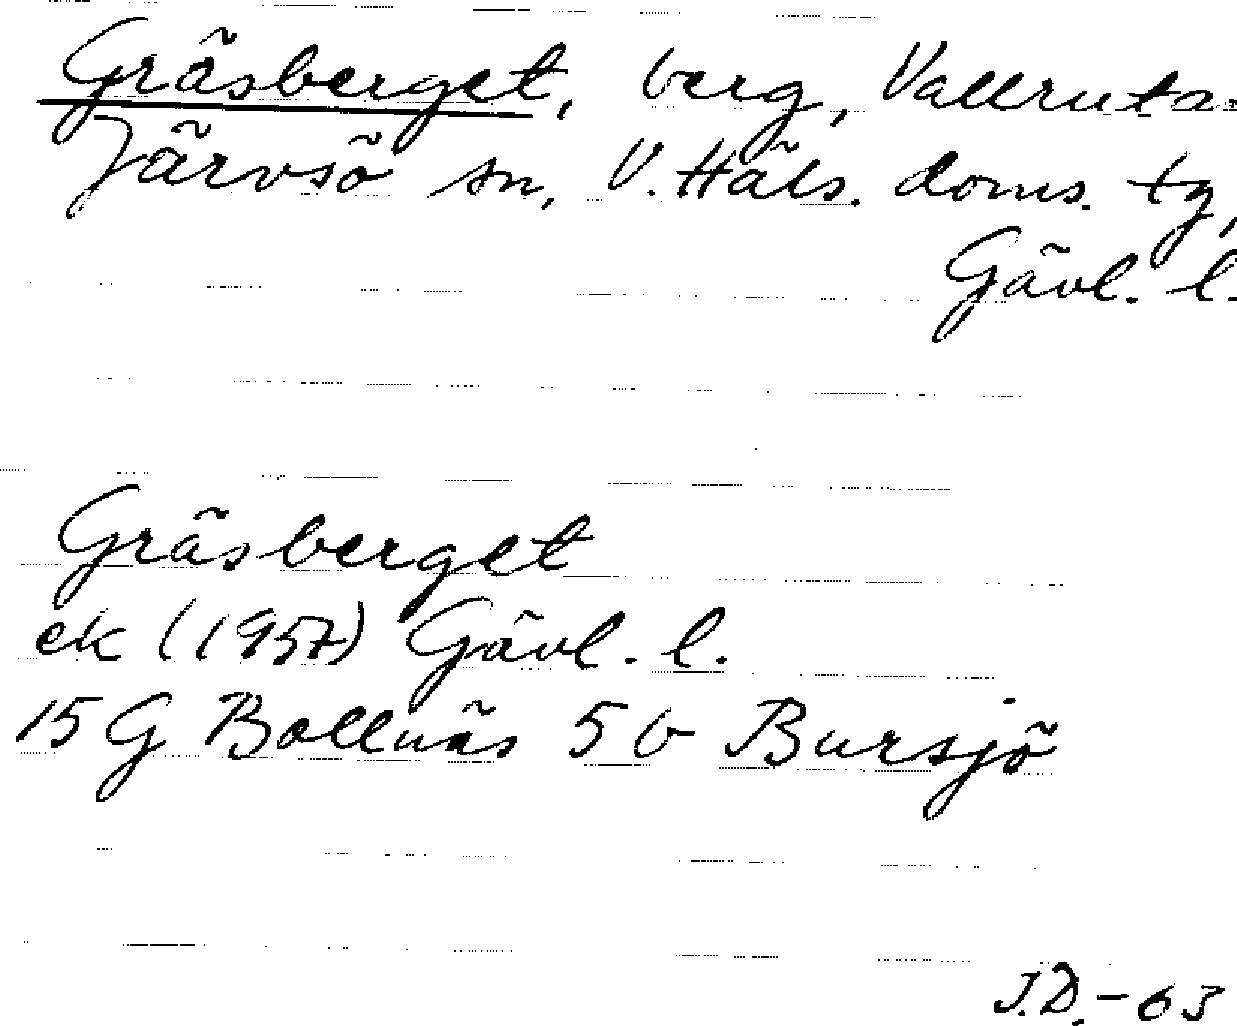 Gräsberget, berg, Vallruta
Järvsö sn, V. Häls. doms. tg,
Gävl. l.
Gräsberget
ek (1957) Gävl. l.
15 G Bollnäs 5 b Bursjö
J.D.-63